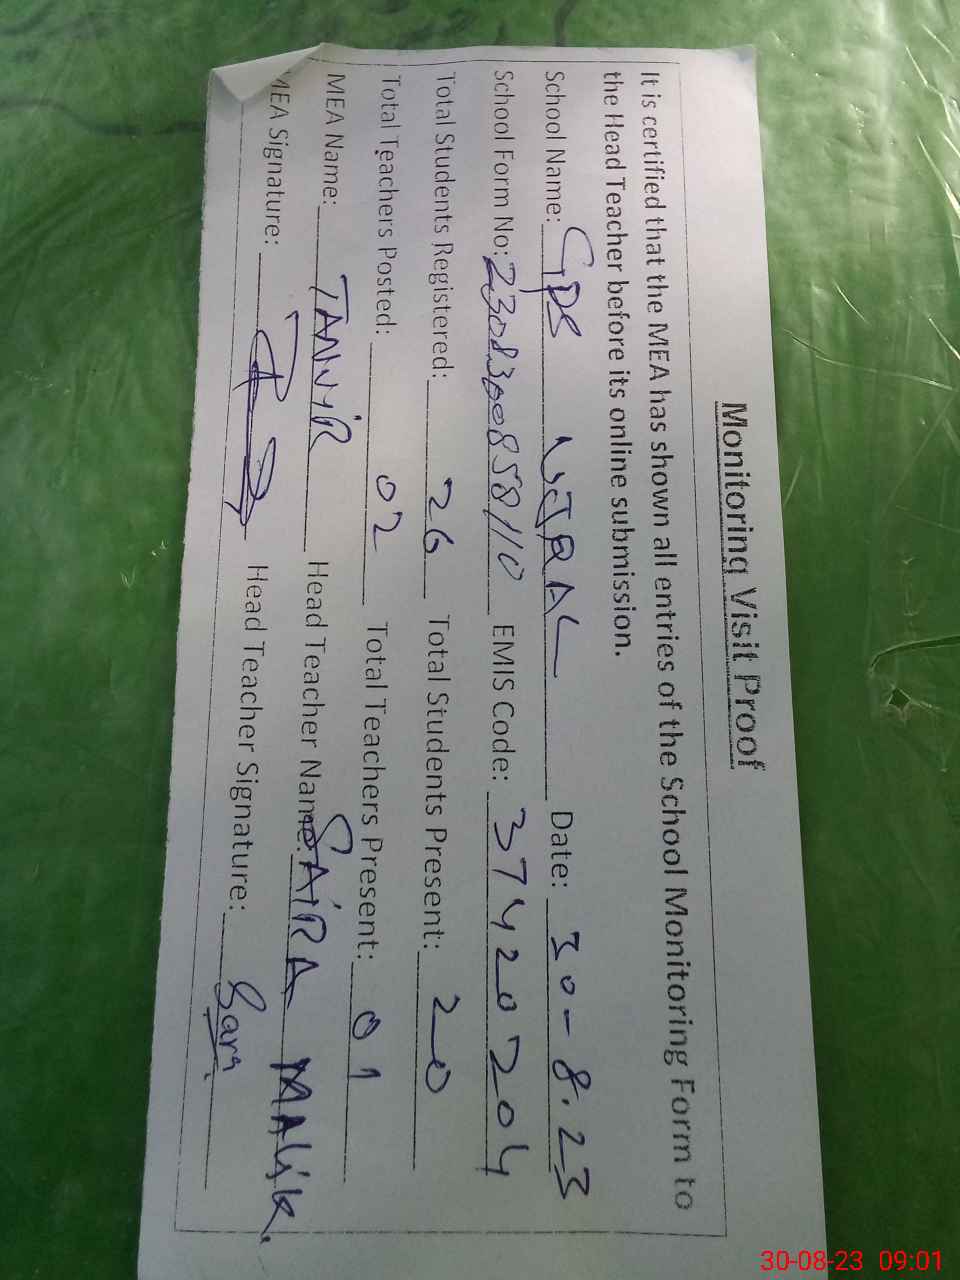 Monitoring Visit Proof
It is certified that the MEA has shown all entries of the School Monitoring Form to
the Head Teacher before its online submission.
School Name: GPS Date: 30-8.23
School Form No: EMIS Code: 37420204
Total Students Registered: 26 Total Students Present: 20
Total Teachers Posted: 02 Total Teachers Present: 01
MEA Name: TANVIR Head Teacher Name: SAIRA MALIK.
MEA Signature: Head Teacher Signature:
30-08-23 09:01